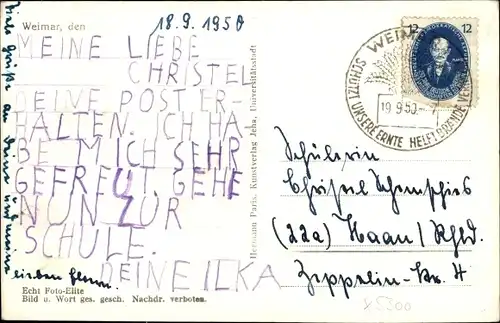 Weimar, den 18.9.1950
MEINE LIEBE
CHRISTEL
DEINE POST ER-
HALTEN. ICH HA
BE MICH SEHR
GEFREUT. GEHE
NUN ZUR
SCHULE.
DEINE ILKA
Viele Grüße an Deine
lieben Eltern.
Echt Foto-Elite
Bild u. Wort ges. gesch. Nachdr. verboten.
Hermann Paris, Kunstverlag Jena, Universitätsstadt
12 12
WEIMAR
19.9.50.-7
SCHÜTZT UNSERE ERNTE HELFT BRÄNDE
Schülerin
Christel
(22a) Haan/Rhd.
Zeppelin-Str. 4
x5300